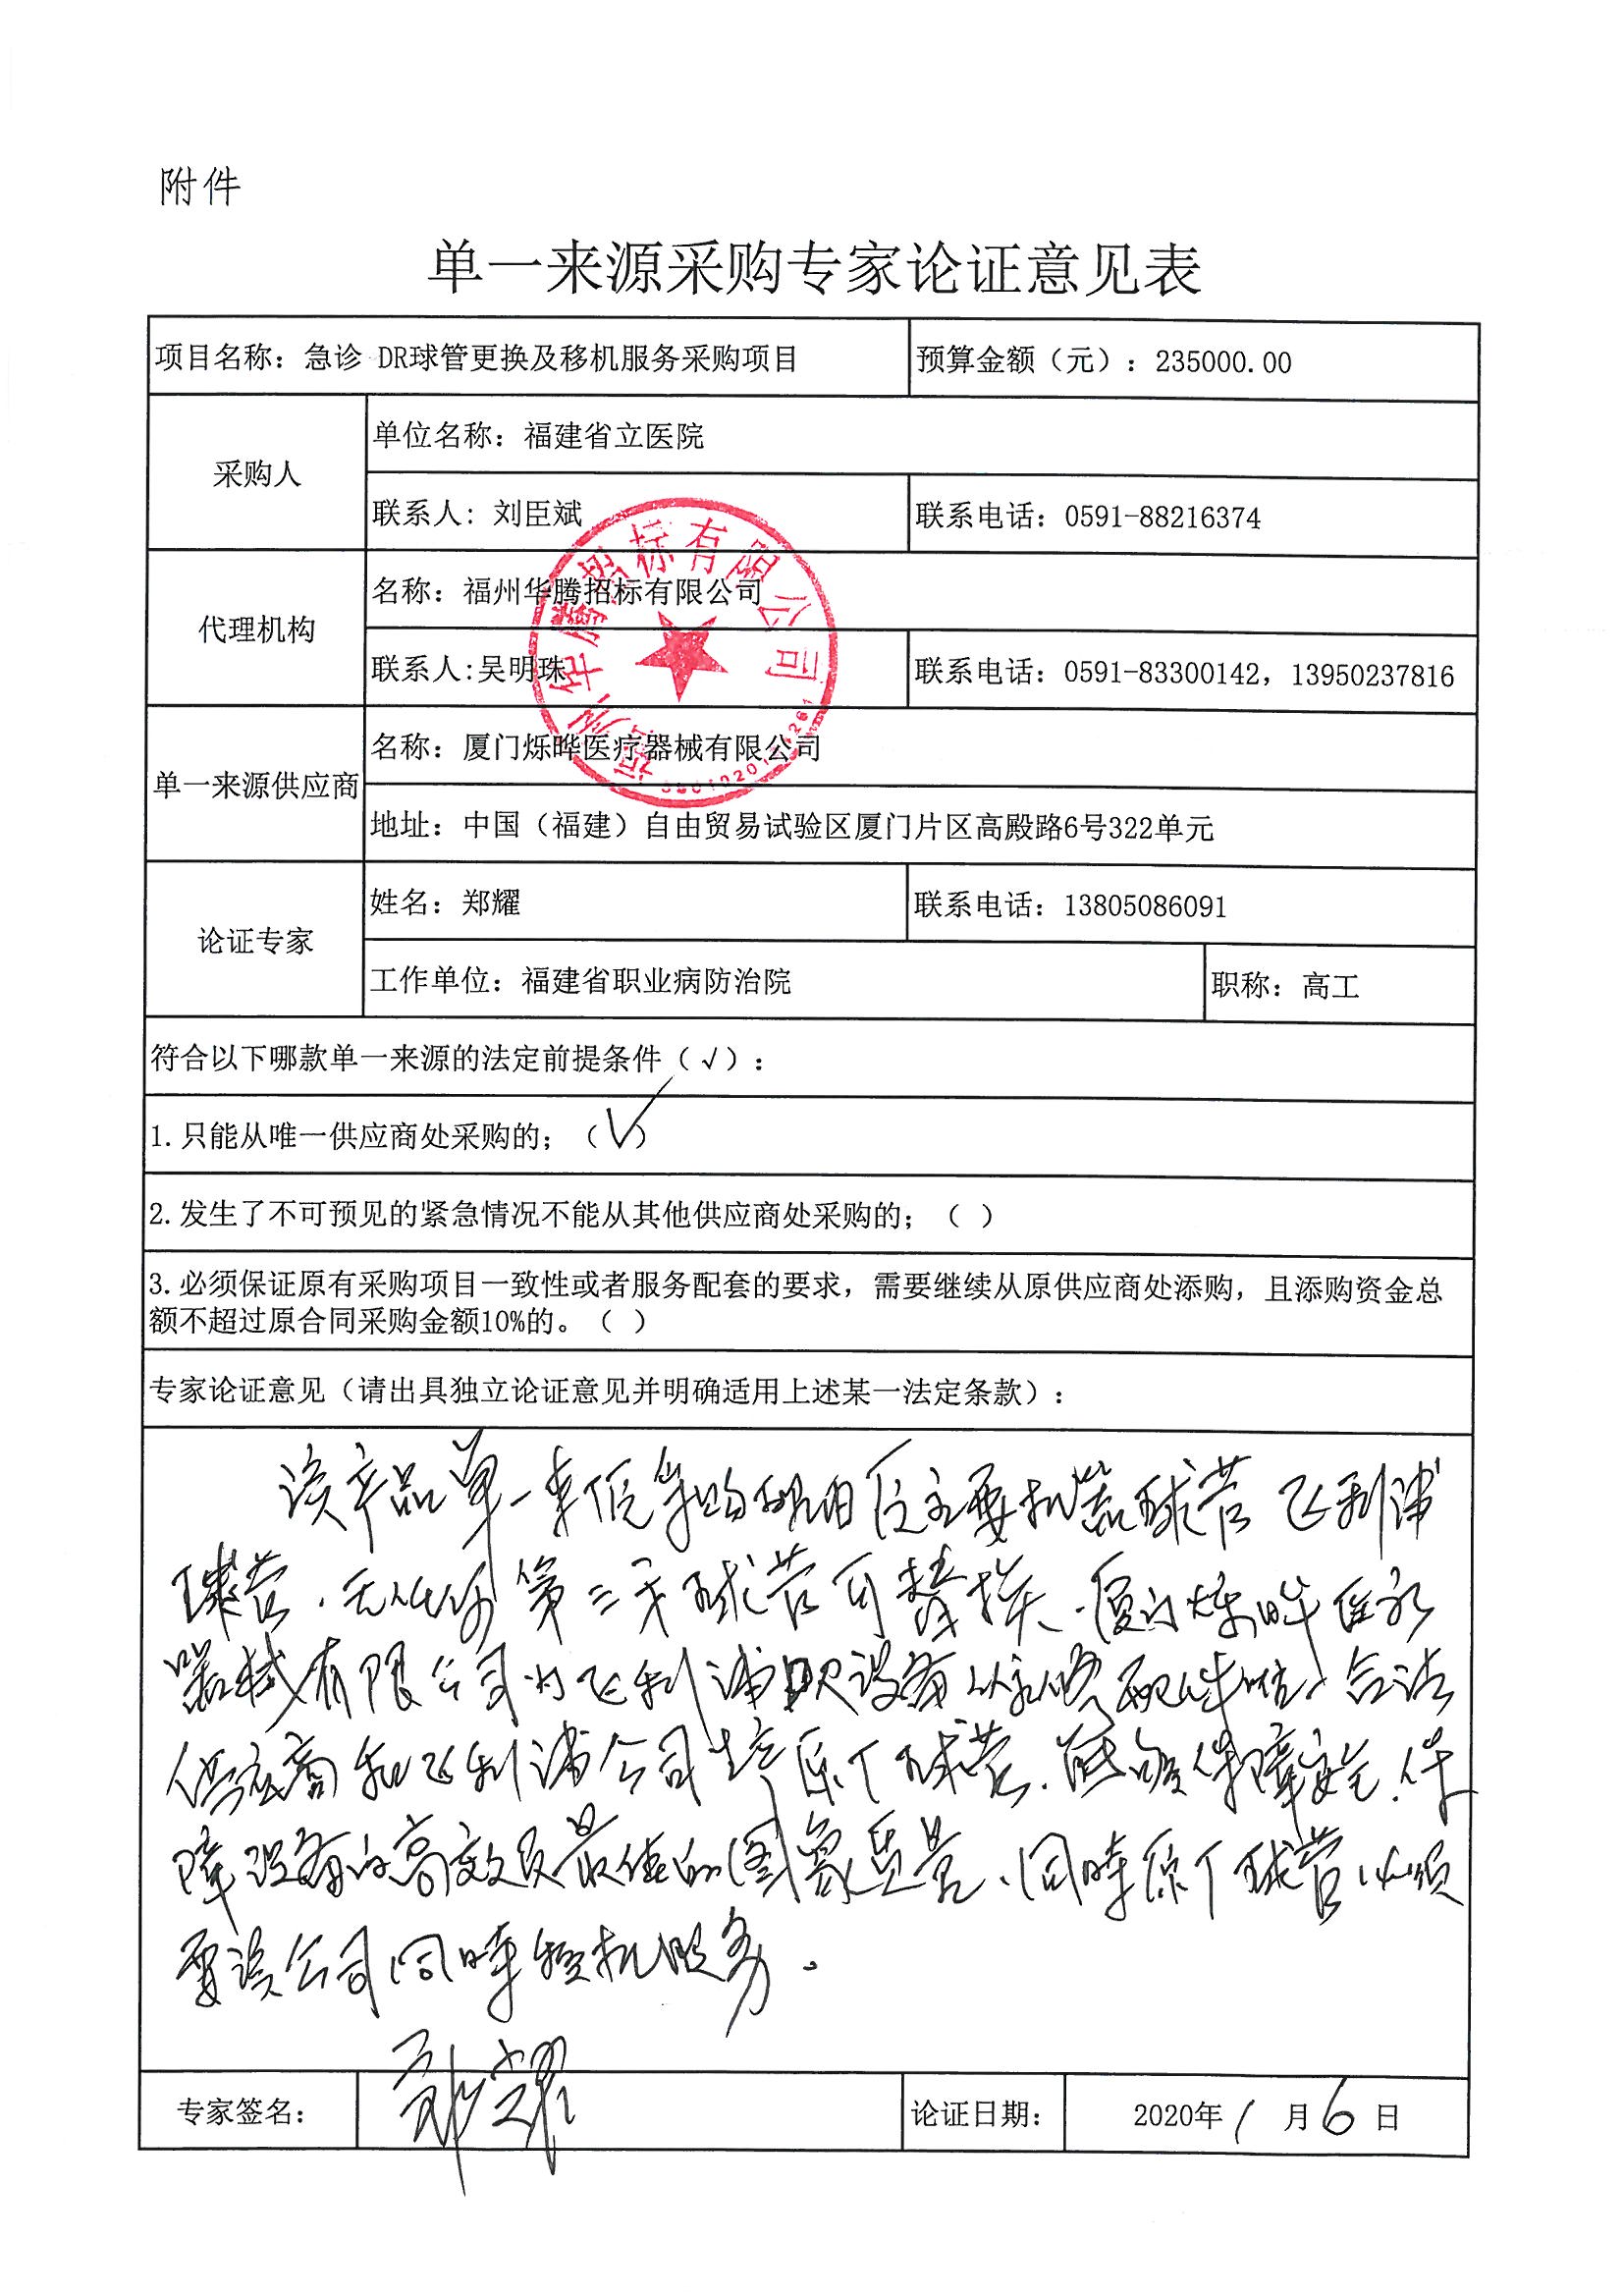 附件
单一来源采购专家论证意见表
项目名称：急诊 DR球管更换及移机服务采购项目
预算金额（元）：235000.00
采购人
单位名称：福建省立医院
联系人：刘臣斌
联系电话：0591-88216374
代理机构
名称：福州华腾招标有限公司
联系人:吴明珠
联系电话：0591-83300142，13950237816
福州华腾招标有限公司
单一来源供应商
名称：厦门烁晔医疗器械有限公司
地址：中国（福建）自由贸易试验区厦门片区高殿路6号322单元
论证专家
姓名：郑耀
联系电话：13805086091
工作单位：福建省职业病防治院
职称：高工
符合以下哪款单一来源的法定前提条件（√）：
1.只能从唯一供应商处采购的；（√）
2.发生了不可预见的紧急情况不能从其他供应商处采购的；（ ）
3.必须保证原有采购项目一致性或者服务配套的要求，需要继续从原供应商处添购，且添购资金总
额不超过原合同采购金额10%的。（ ）
专家论证意见（请出具独立论证意见并明确适用上述某一法定条款）：
该产品单一来源采购理由主要机器球管飞利浦
球管，无任何第三方球管可替换、厦门烁晔医疗
器械有限公司为飞利浦设备配件合法
供应商和飞利浦公司生产原厂球管，能够保障安全，保
障设备的高效及最佳的图象质量、同时原厂球管必须
要该公司同时移机服务。
专家签名：
郑耀
论证日期：
2020年1月6日